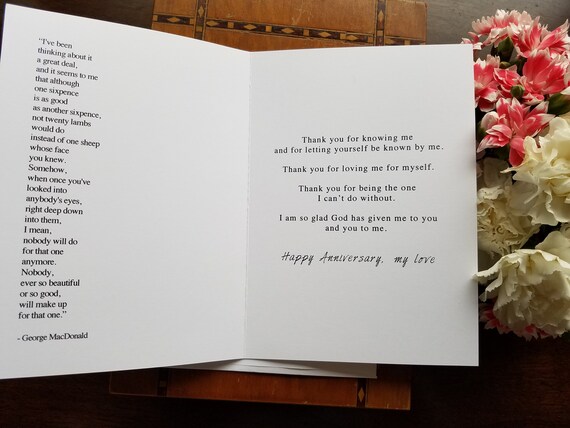 “I’ve been
thinking about it
a great deal,
and it seems to me
that although
one sixpence
is as good
as another sixpence,
not twenty lambs
would do
instead of one sheep
whose face
you knew.
Somehow,
when once you’ve
looked into
anybody’s eyes,
right deep down
into them,
I mean,
nobody will do
for that one
anymore.
Nobody,
ever so beautiful
or so good,
will make up
for that one.”
- George MacDonald
Thank you for knowing me
and for letting yourself be known by me.
Thank you for loving me for myself.
Thank you for being the one
I can’t do without.
I am so glad God has given me to you
and you to me.
Happy Anniversary, my love